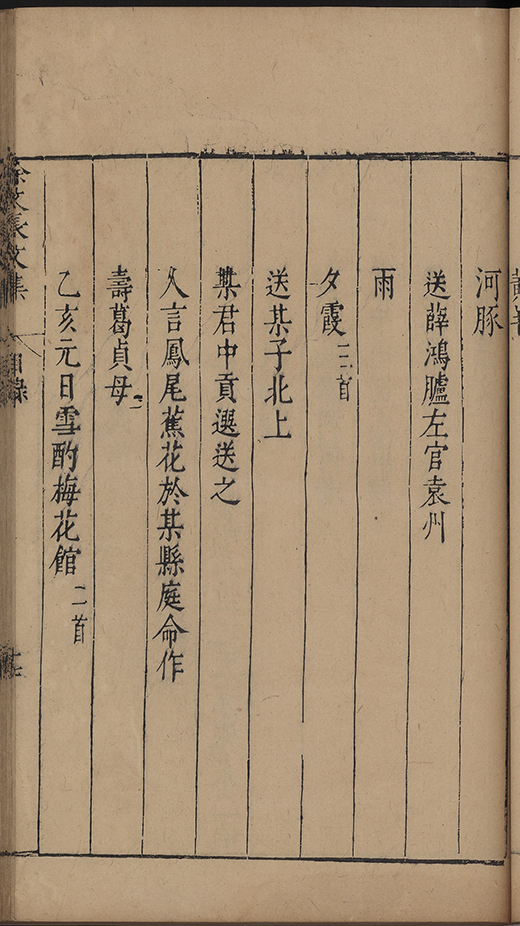 河豚
送薛鴻臚左官袁州
雨
夕霞二首
送某子北上
某君中貢選送之
人言鳳尾蕉花於某縣庭命作
壽葛貞母
乙亥元日雪酌梅花館二首
徐文長文集
目錄